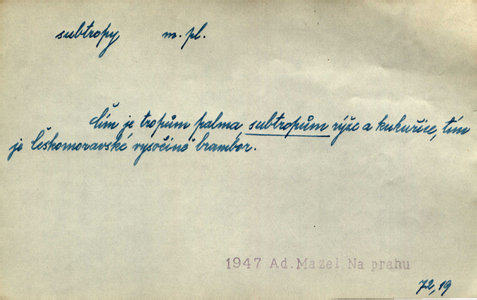 subtropy m. pl.
Čím je tropům palma, subtropům rýže a kukuřice, tím
je Českomoravské vysočině brambor.
1947 Ad. Mazel Na prahu
72,19